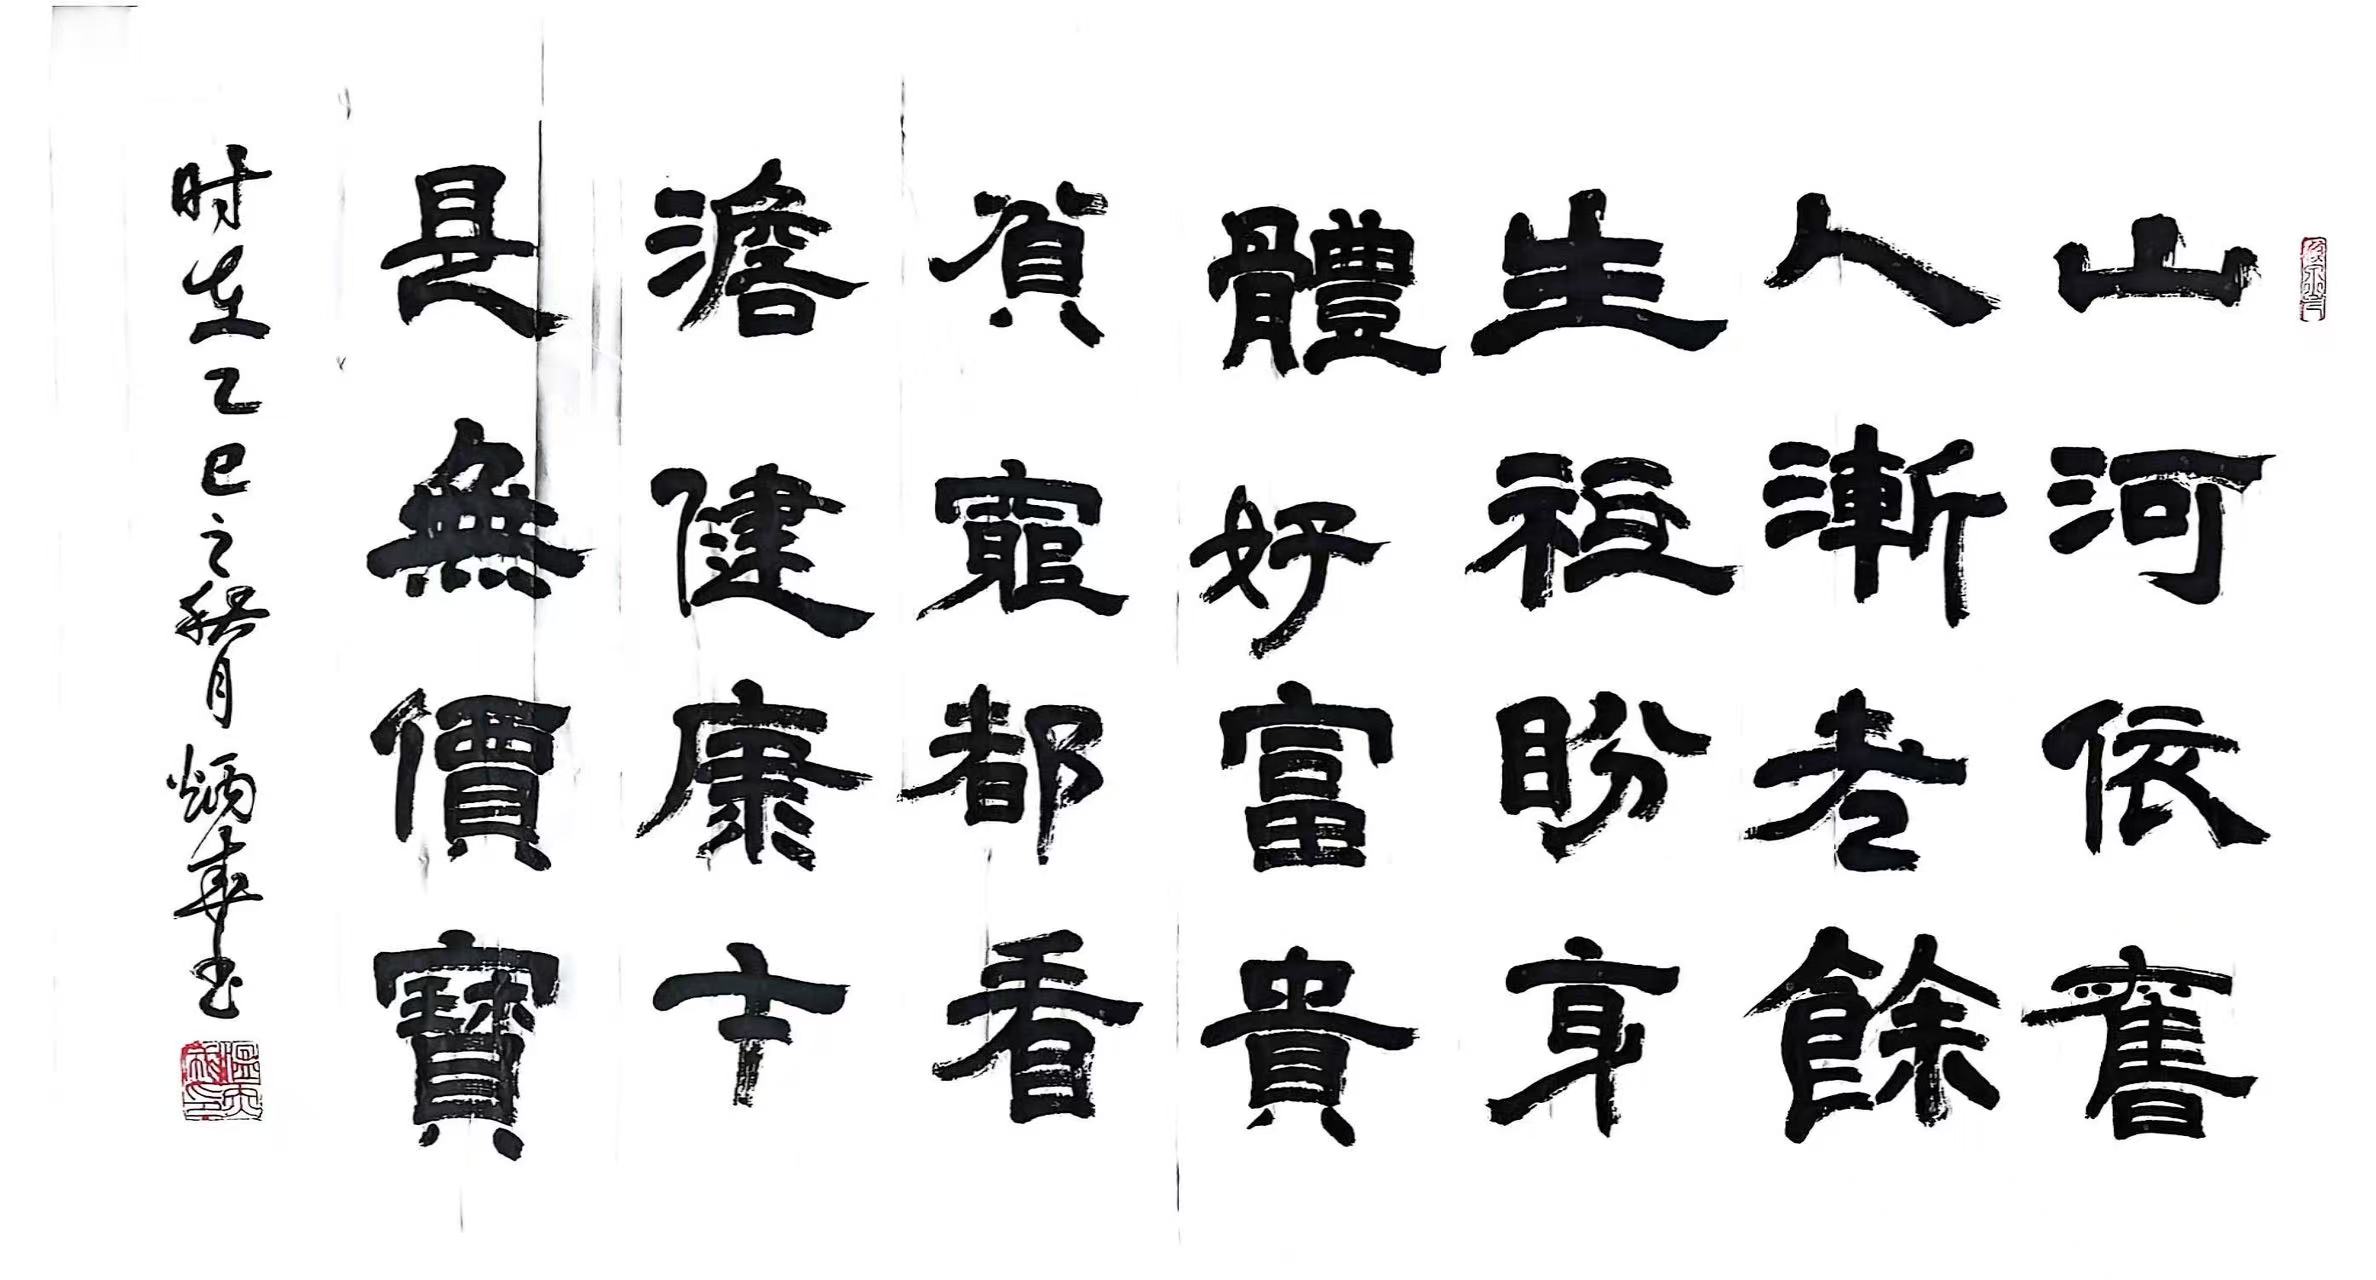 山河依舊
人漸老餘
生祗盼身
體好富貴
貧窮都看
澹健康才
是無價寶
时在乙巳之秋月炳華书